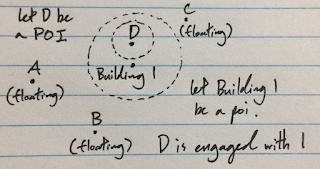 let D be
a POI
C
(floating)
D
A
(floating)
Building 1
let Building 1
be a poi.
B
(floating)
D is engaged with 1